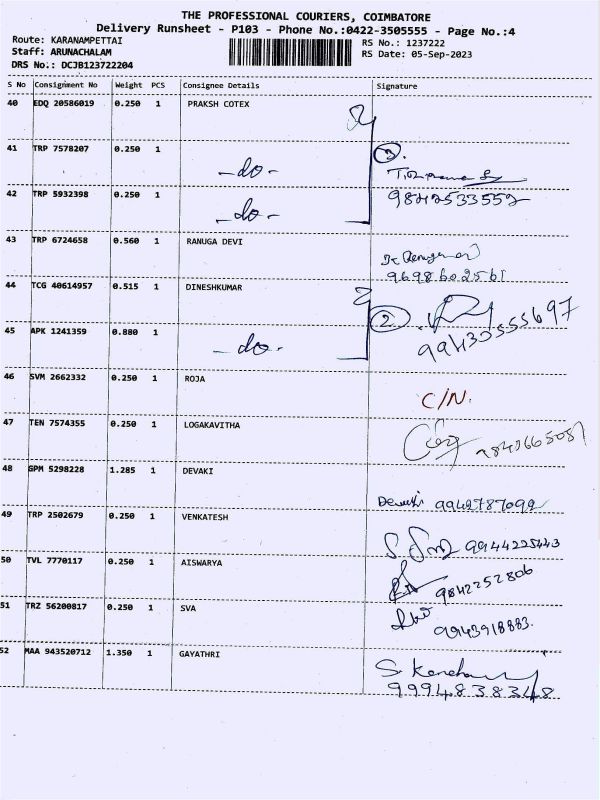 THE PROFESSIONAL COURIERS, COIMBATORE
Delivery Runsheet - P103 - Phone No.:0422-3505555 - Page No.:4
Route: KARANAMPETTAI
RS No.: 1237222
Staff: ARUNACHALAM
RS Date: 05-Sep-2023
DRS No.: DCJB123722204
S No Consignment No Weight PCS Consignee Details Signature
40 EDQ 20586019 0.250 1 PRAKSH COTEX
41 TRP 7578207 0.250 1 -do- 3.
42 TRP 5932398 0.250 1 -do- 9842533552
43 TRP 6724658 0.560 1 RANUGA DEVI
9698602561
44 TCG 40614957 0.515 1 DINESHKUMAR 2
45 APK 1241359 0.880 1 -do- 99430555697
46 SVM 2662332 0.250 1 ROJA C/N.
47 TEN 7574355 0.250 1 LOGAKAVITHA 9840665087
48 GPM 5298228 1.285 1 DEVAKI Devaki 9942787092
49 TRP 2502679 0.250 1 VENKATESH 9944225443
50 TVL 7770117 0.250 1 AISWARYA 9842252806
51 TRZ 56200817 0.250 1 SVA 9943918883.
52 MAA 943520712 1.350 1 GAYATHRI
9994838348